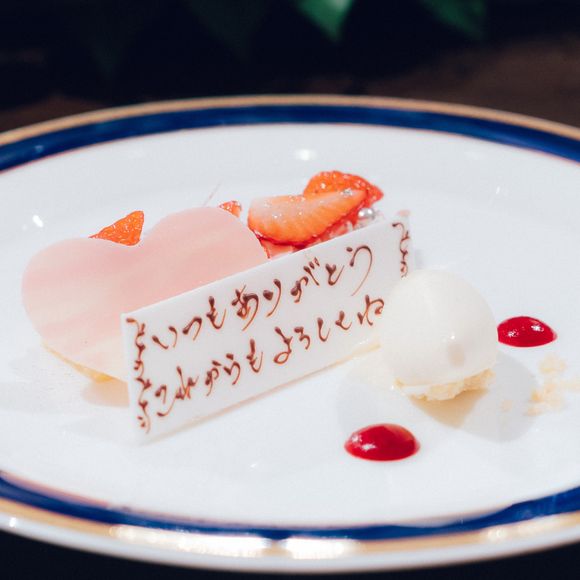 いつもありがとう
これからもよろしくね